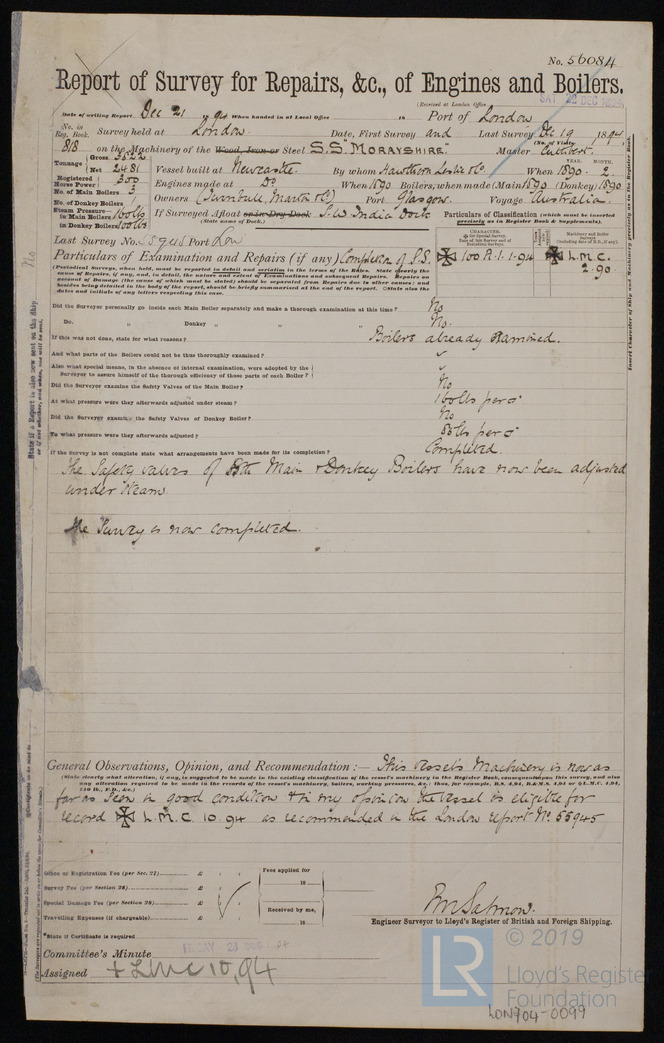 No. 56084
Report of Survey for Repairs, &c., of Engines and Boilers.
(Received at London Office SAT. 22 DEC 1894
Date of writing Report Dec 21 1894 When handed in at Local Office 18 Port of London
No. in Reg. Book. Survey held at London Date, First Survey and Last Survey Dec 19 1894
(No. of Visits
818 on the Machinery of the Wood, Iron or Steel S.S. "MORAYSHIRE" Master Cuthbert
Tonnage Gross 5522
Net 2481
Vessel built at Newcastle By whom Hawthorn Leslie & Co. When 1890 2
YEAR. MONTH.
Registered Horse Power 300
Engines made at Do When 1890 Boilers, when made (Main) 1890 (Donkey) 1890
No. of Main Boilers 3
Owners (Turnbull, Martin & Co) Port Glasgow. Voyage Australia.
No. of Donkey Boilers 1
Steam Pressure—
in Main Boilers 160 lbs
in Donkey Boilers
If Surveyed Afloat or in Dry Dock S.W. India Dock
(State name of Dock.)
Particulars of Classification (which must be inserted precisely as in Register Book & Supplements).
Last Survey No. 55945 Port Lon
Particulars of Examination and Repairs (if any) Completion of S.S.
CHARACTER.
100 A.1. 1.94
L.M.C.
2.90.
Did the Surveyor personally go inside each Main Boiler separately and make a thorough examination at this time? No
Do. „ Donkey „ „ „ ? No.
If this was not done, state for what reasons? Boilers already examined.
And what parts of the Boilers could not be thoroughly examined? ✓
Also what special means, in the absence of internal examination, were adopted by the
Surveyor to assure himself of the thorough efficiency of those parts of each Boiler? ✓
Did the Surveyor examine the Safety Valves of the Main Boiler? No
At what pressure were they afterwards adjusted under steam? 160 lbs per □"
Did the Surveyor examine the Safety Valves of Donkey Boiler? No
To what pressure were they afterwards adjusted? lbs per □"
If the Survey is not complete state what arrangements have been made for its completion? Completed.
The Safety valves of Both Main & Donkey Boilers have now been adjusted
under steam
The Survey is now completed.
General Observations, Opinion, and Recommendation :— This vessel's Machinery is now as
(State clearly what alteration, if any, is suggested to be made in the existing classification of the vessel's machinery in the Register Book, consequent upon this survey, and also
any alteration required to be made in the records of the vessel's machinery, boilers, working pressures, &c.: thus, for example, B.S. 4.94, B.&M.S. 4.94 or L.M.C. 4.94,
140 lb., F.D., &c.)
far as seen in good condition & in my opinion the vessel is eligible for
record L.M.C. 10.94 as recommended in the London report No. 55945
Office or Registration Fee (per Sec. 27) £ : :
Survey Fee (per Section 28) £ : :
Special Damage Fee (per Section 28) £ : :
Travelling Expenses (if chargeable) £ : :
Fees applied for
18
Received by me,
18
Engineer Surveyor to Lloyd's Register of British and Foreign Shipping.
*State if Certificate is required
Committee's Minute
Assigned + LMC 10,94
State if a Report is also now sent on the Ship No
Insert Character of Ship and Machinery precisely as in the Register Book.
LR © 2019
Lloyd's Register
Foundation
LON704-0099